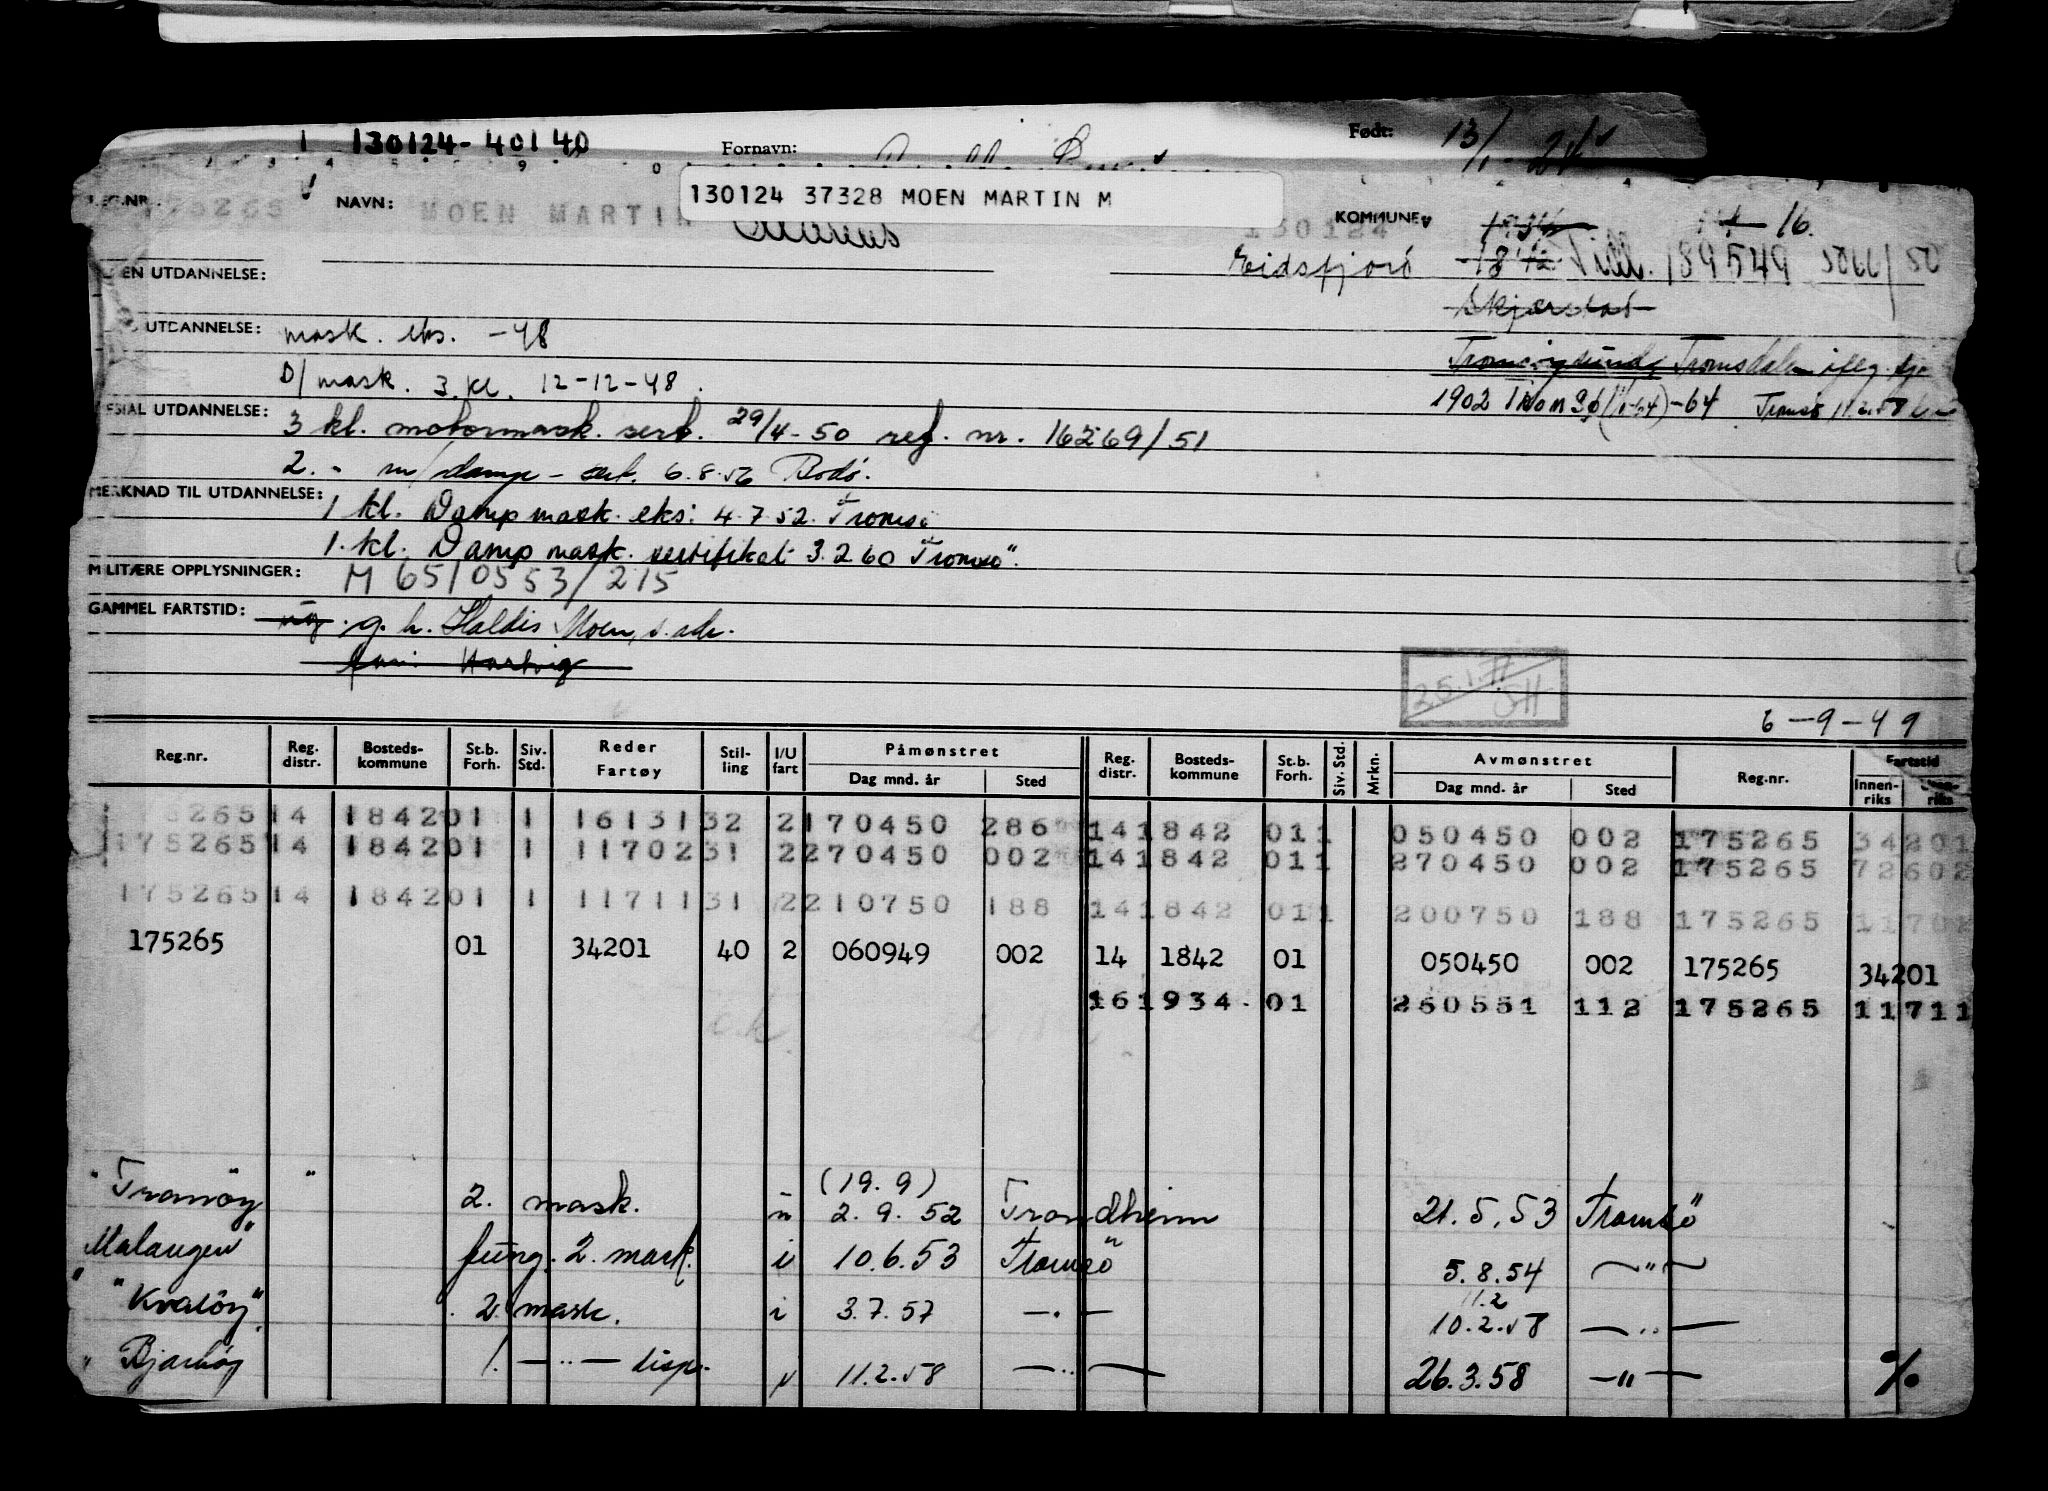 130124-40140 Fornavn: Født: 13/1-24
130124 37328 MOEN MARTIN M
175265 NAVN: MOEN MARTIN Marius 130124 KOMMUNE: 16.
EN UTDANNELSE: Eidsfjord 1842 189549
Skjerstad
UTDANNELSE: mask. eks. -48
Tromsøysund Tromsdalen
D/mask. 3. kl. 12-12-48.
1902 -64 Tromsö 11.2.58
ESIAL UTDANNELSE: 3 kl. motormask. sert. 29/4-50 reg. nr. 16269/51
2. - m/damp - sert. 6.8.56 Bodö.
MERKNAD TIL UTDANNELSE: 1 kl. Damp mask. eks: 4.7.52. Tromsö
1. kl. Damp mask. sertifikat 3.2 60 Tromsö".
MILITÆRE OPPLYSNINGER: M 6510553/215
GAMMEL FARTSTID: ug. g. h. Haldis Moen, s. adr.
Hartvig
25.1.
6-9-49
Reg.nr. Reg. distr. Bosteds-kommune St.b. Forh. Siv. Std. Reder Fartøy Stil-ling I/U fart Påmønstret Dag mnd. år Sted Reg. distr. Bosteds-kommune St.b. Forh. Siv. Std. Mrkn. Avmønstret Dag mnd. år Sted Reg.nr. Fartstid Innen-riks
26514 184201 1 16131 32 2 170450 286 141842 011 050450 002 175265 34201
17526514 184201 1 11702 31 2 270450 002 141842 011 270450 002 175265 72602
17526514 184201 1 11711 31 2 210750 188 141842 011 200750 188 175265 11702
175265 01 34201 40 2 060949 002 14 1842 01 050450 002 175265 34201
161934 01 260551 112 175265 11711
o.k.
(19.9)
"Tranöy" " 2. mask. u 2.9.52 Trondheim 21.5.53 Tromsö
Malangen" fung. 2. mask. i 10.6.53 Tromsö 5.8.54 —"—
11.2
"Kvalöy". 2 mask. i 3.7.57 —.— 10.2.58 —..—
" Bjarköy 1. —..— disp. 11.2.58 —..— 26.3.58 —"— %